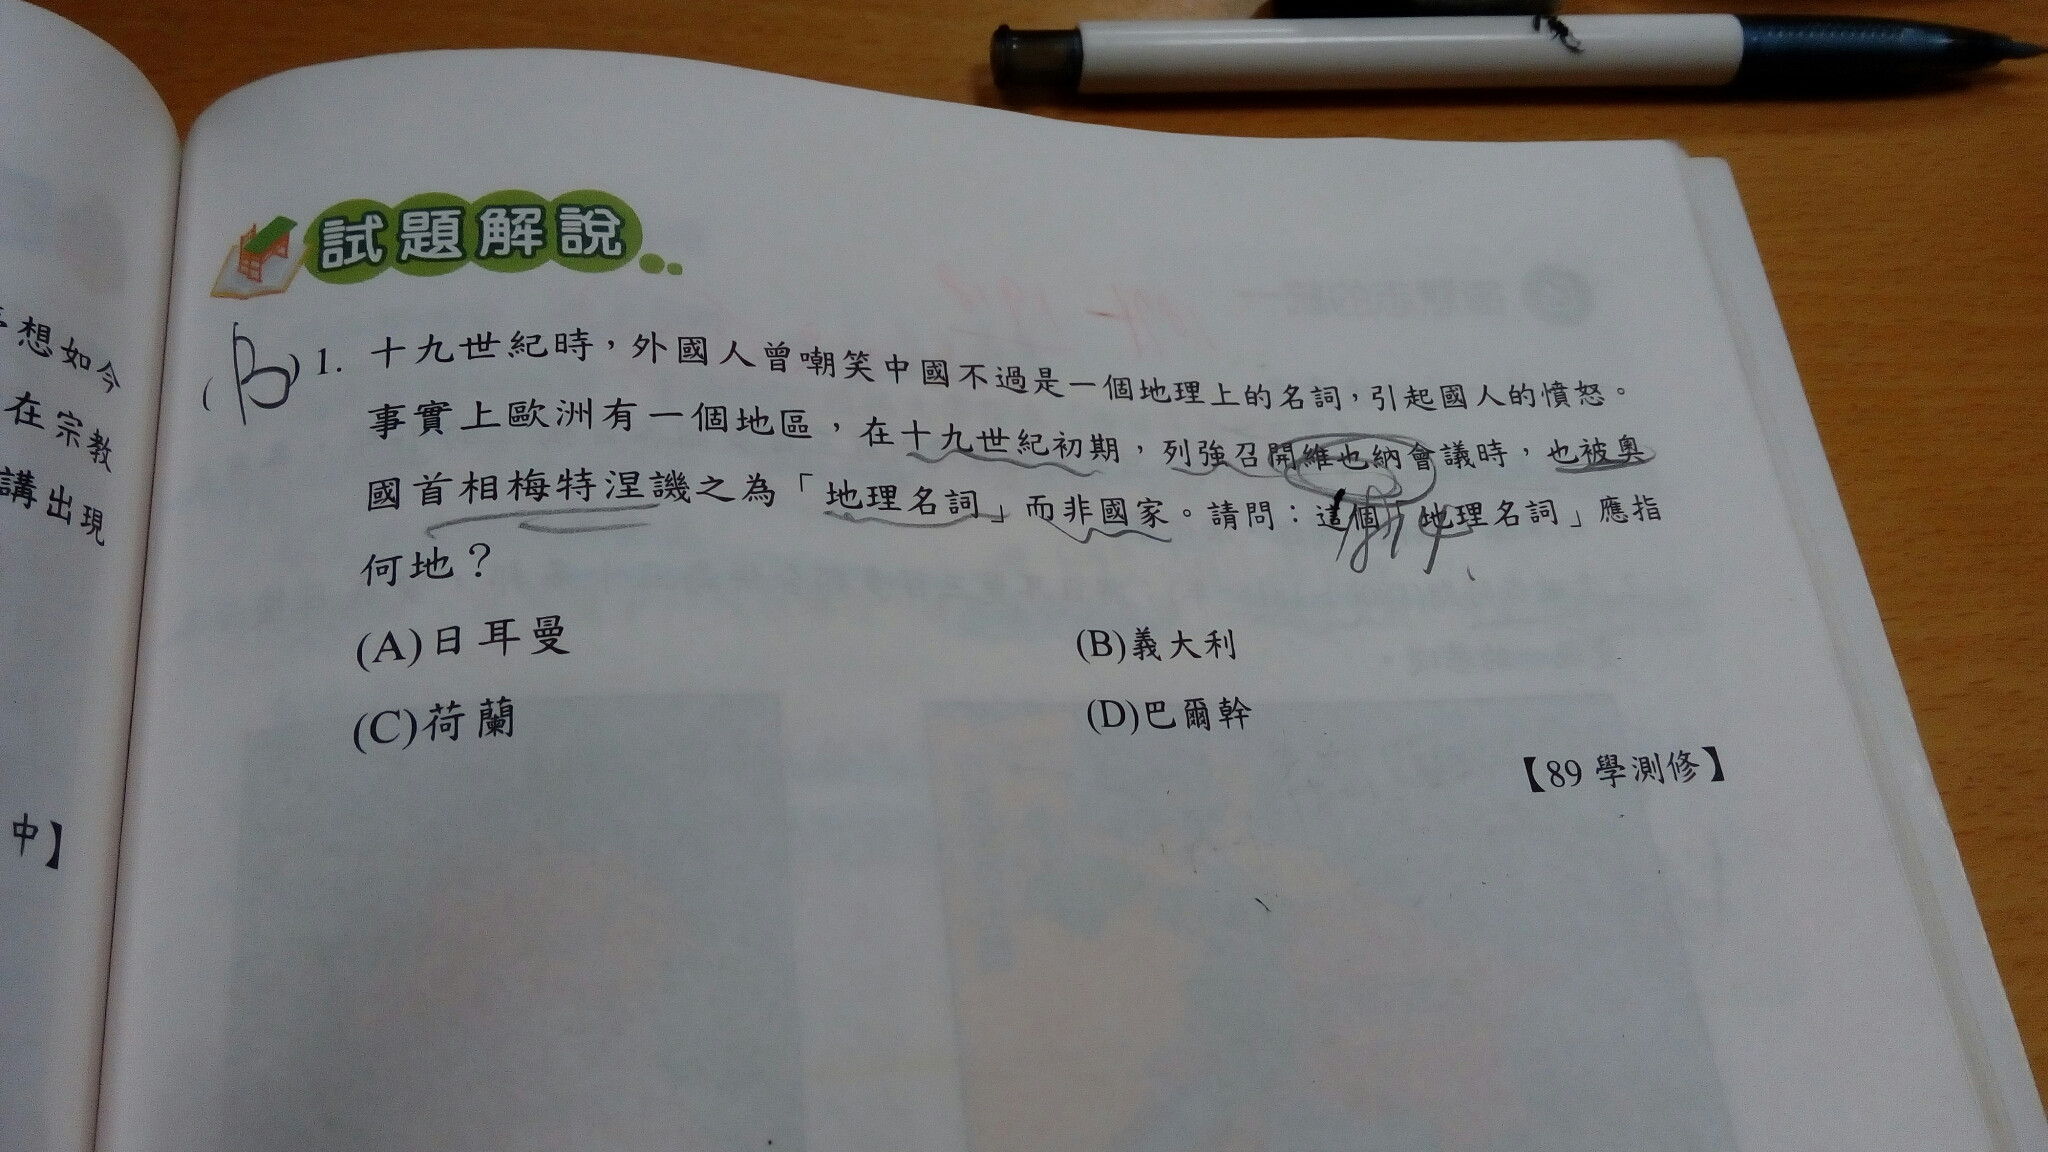 想如今
在宗教
講出現
中】
試題解說
(B)1. 十九世紀時，外國人曾嘲笑中國不過是一個地理上的名詞，引起國人的憤怒。
事實上歐洲有一個地區，在十九世紀初期，列強召開維也納會議時，也被奧
國首相梅特涅譏之為「地理名詞」而非國家。請問：這個「地理名詞」應指
1814
何地？
(A)日耳曼 (B)義大利
(C)荷蘭 (D)巴爾幹
【89 學測修】